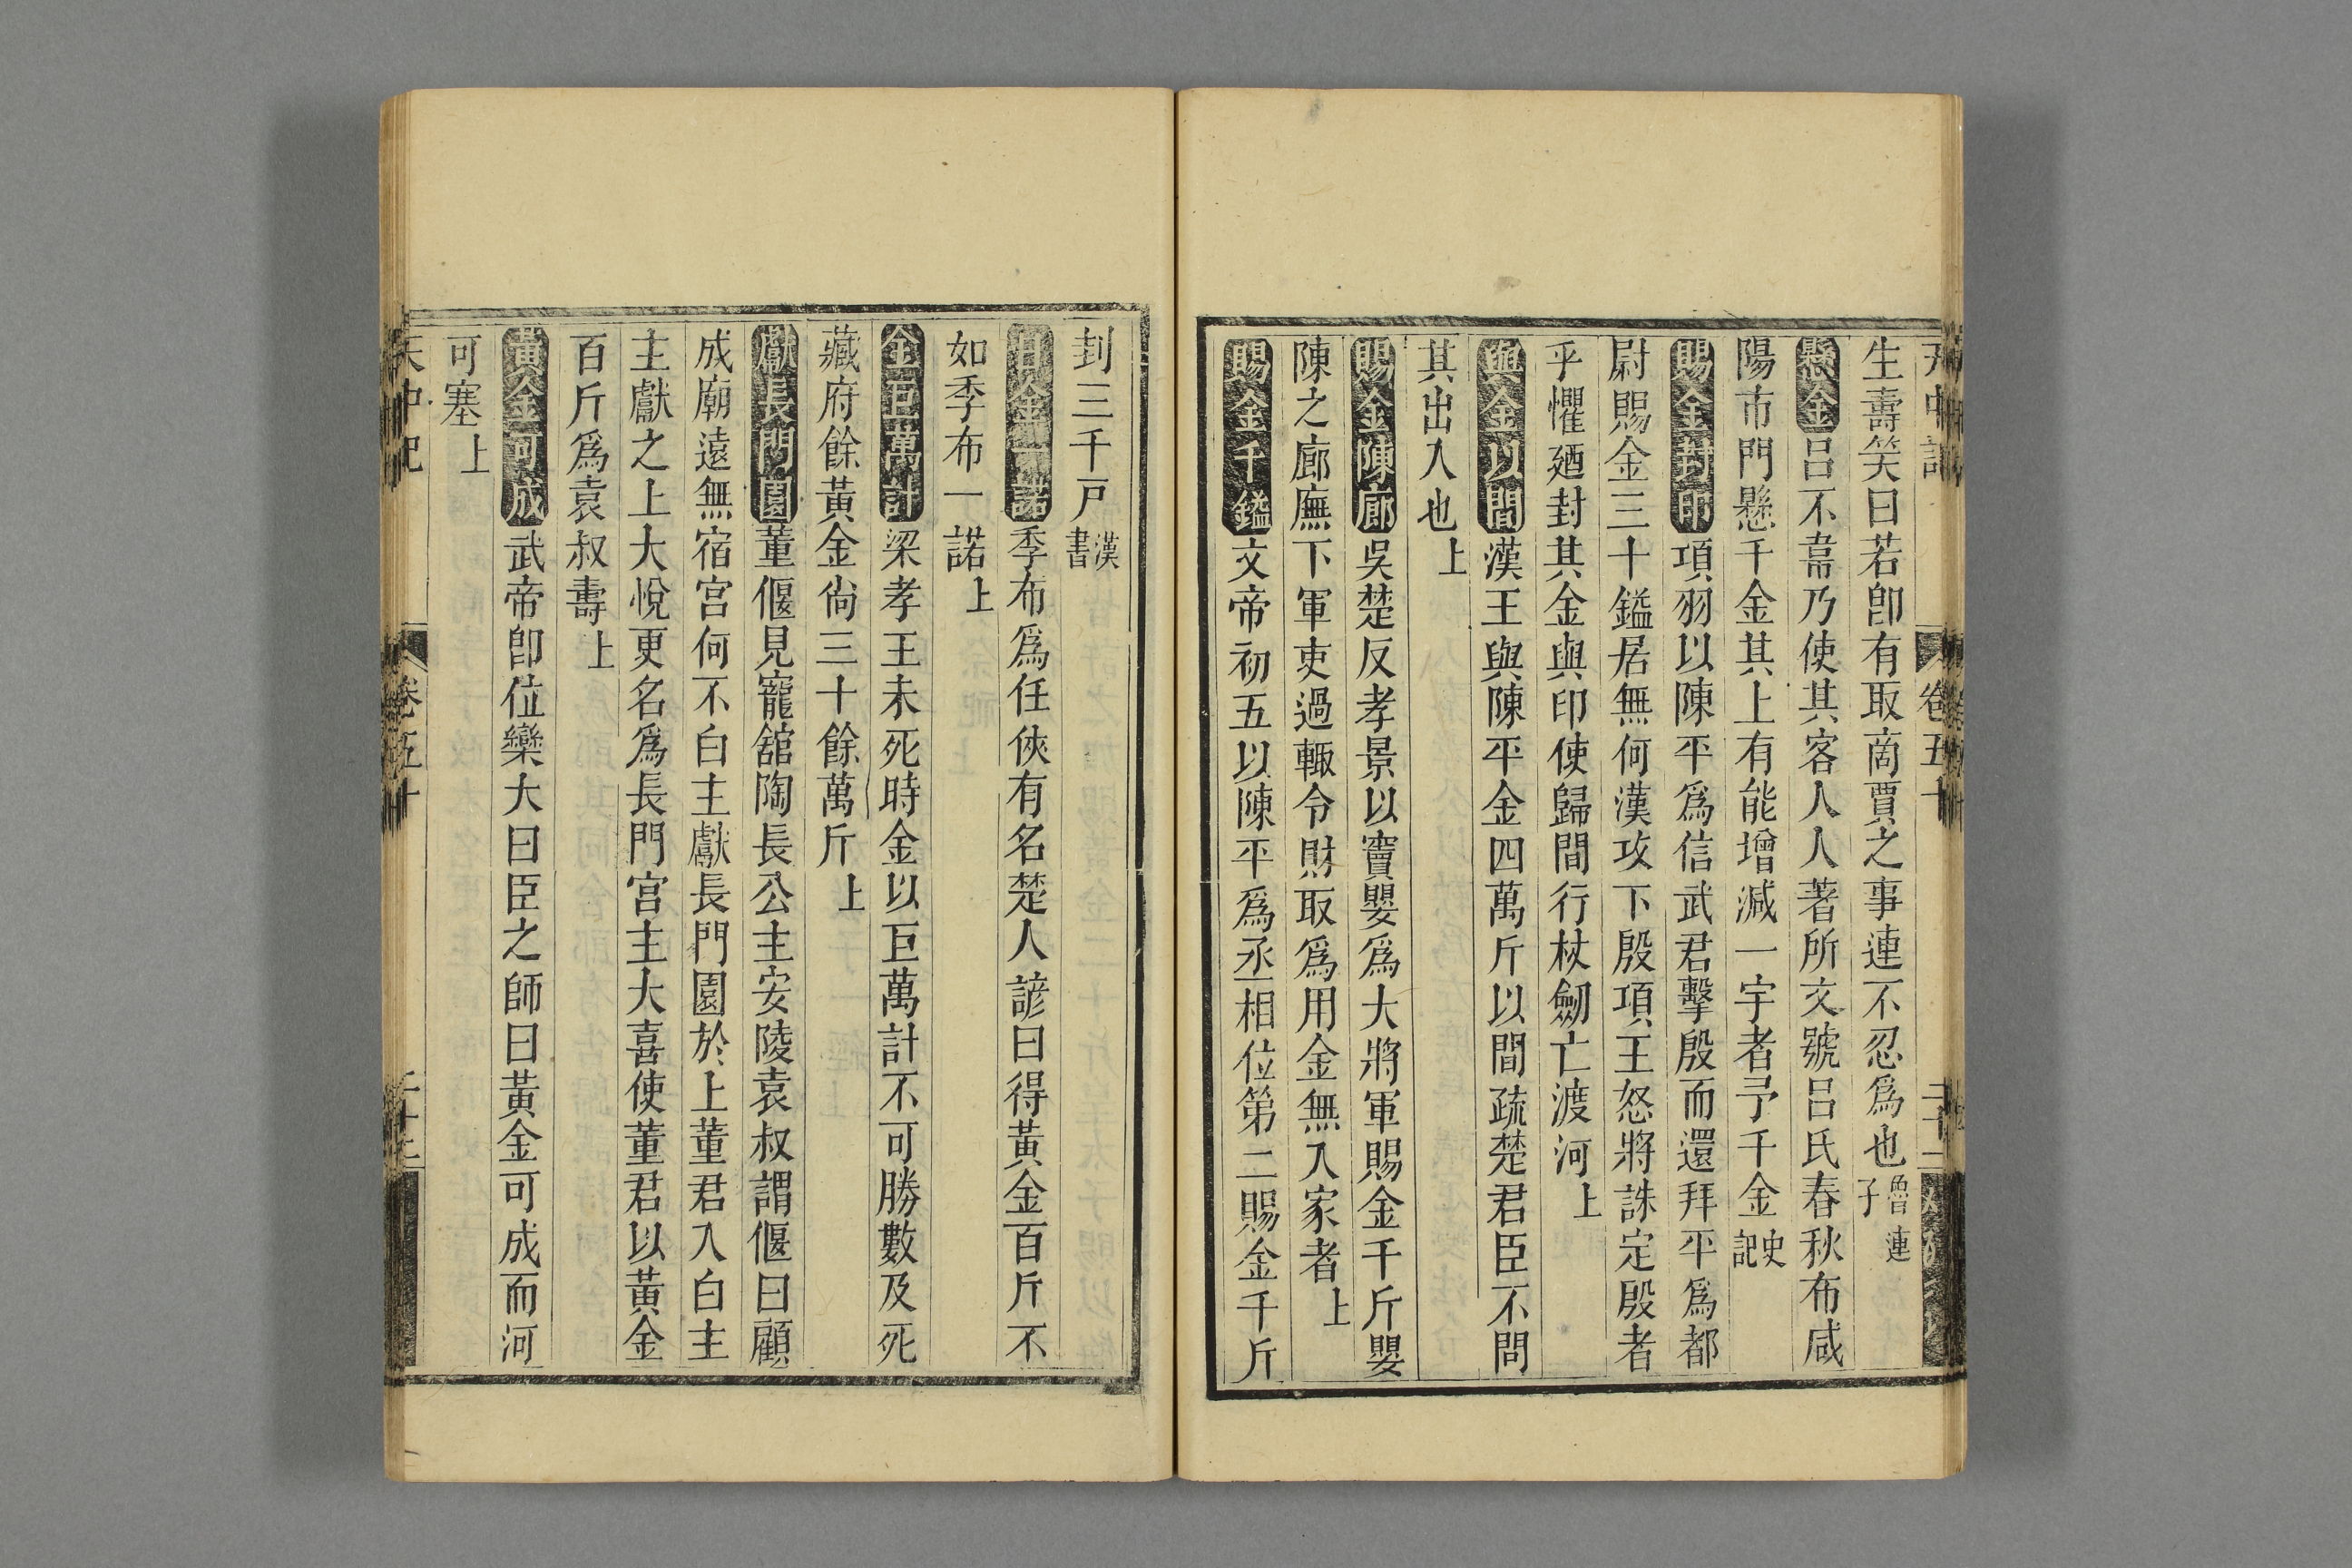 生壽笑曰若卽有取啇賈之事連不忍爲也魯連子
懸金呂不韋乃使其客人人著所文號呂氏春秋布咸
陽市門懸千金其上有能增減一字者予千金史記
賜金封印項羽以陳平爲信武君擊殷而還拜平爲都
尉賜金三十鎰居無何漢攻下殷項王怒將誅定殷者
乎懼廼封其金與印使歸間行杖劒亡渡河上
與金以間漢王與陳平金四萬斤以間疏楚君臣不問
其出入也上
賜金陳廊吳楚反孝景以竇嬰爲大將軍賜金千斤嬰
陳之廊廡下軍吏過輙令財取爲用金無入家者上
賜金千鎰文帝初五以陳平爲丞相位第二賜金千斤
封三千戸漢書
百金一諾季布爲任俠有名楚人諺曰得黃金百斤不
如季布一諾上
金巨萬計梁孝王未死時金以巨萬計不可勝數及死
藏府餘黃金尙三十餘萬斤上
獻長門園董偃見寵舘陶長公主安陵袁叔謂偃曰顧
成廟遠無宿宮何不白主獻長門園於上董君入白主
主獻之上大悅更名爲長門宮主大喜使董君以黃金
百斤爲袁叔壽上
黃金可成武帝卽位欒大曰臣之師曰黃金可成而河
可塞上
天中記 卷五十